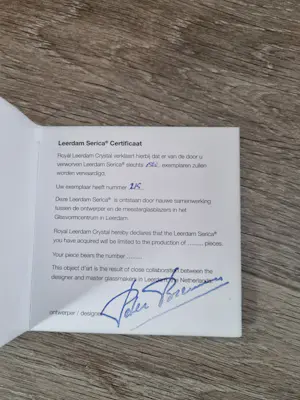 Leerdam Serica® Certificaat
Royal Leerdam Crystal verklaart hierbij dat er van de door u
verworven Leerdam Serica® slechts exemplaren zullen
worden vervaardigd.
Uw exemplaar heeft nummer 215
Deze Leerdam Serica® is ontstaan door nauwe samenwerking
tussen de ontwerper en de meesterglasblazers in het
Glasvormcentrum in Leerdam.
Royal Leerdam Crystal hereby declares that the Leerdam Serica®
you have acquired will be limited to the production of ......... pieces.
Your piece bears the number .........
This object d'art is the result of close collaboration between the
designer and master glassmakers in Leerdam, the Netherlands.
ontwerper / designer